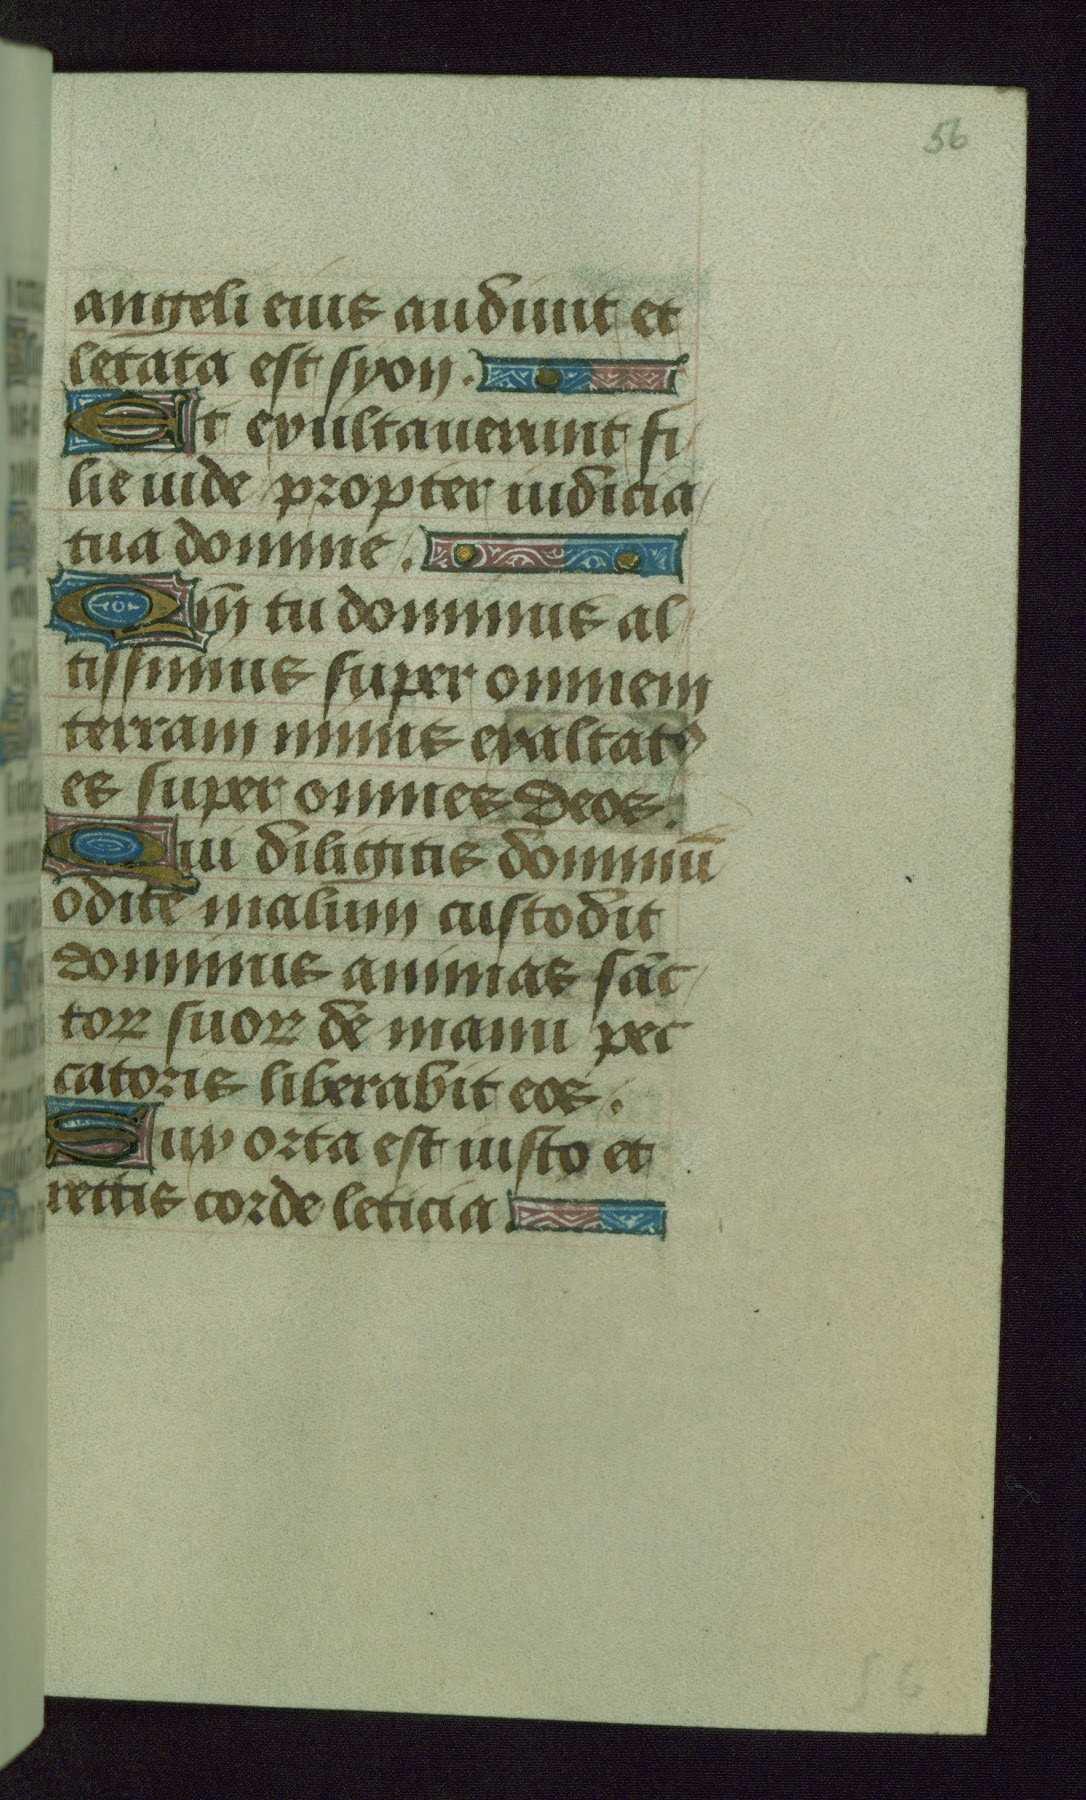 56
angeli eius audiunt et
letata est syon.
Et exultauerunt fi
lie iude propter iudicia
tua domine.
Qm̄ tu dominus al
tissimus super omnem
terram nimis exaltatꝰ
es super omnes deos.
Qui diligitis dominū
odite malum custodit
dominus animas sāc
toꝝ suoꝝ de manu pec
catoris liberabit eos.
Lux orta est iusto et
rectis corde leticia.
56